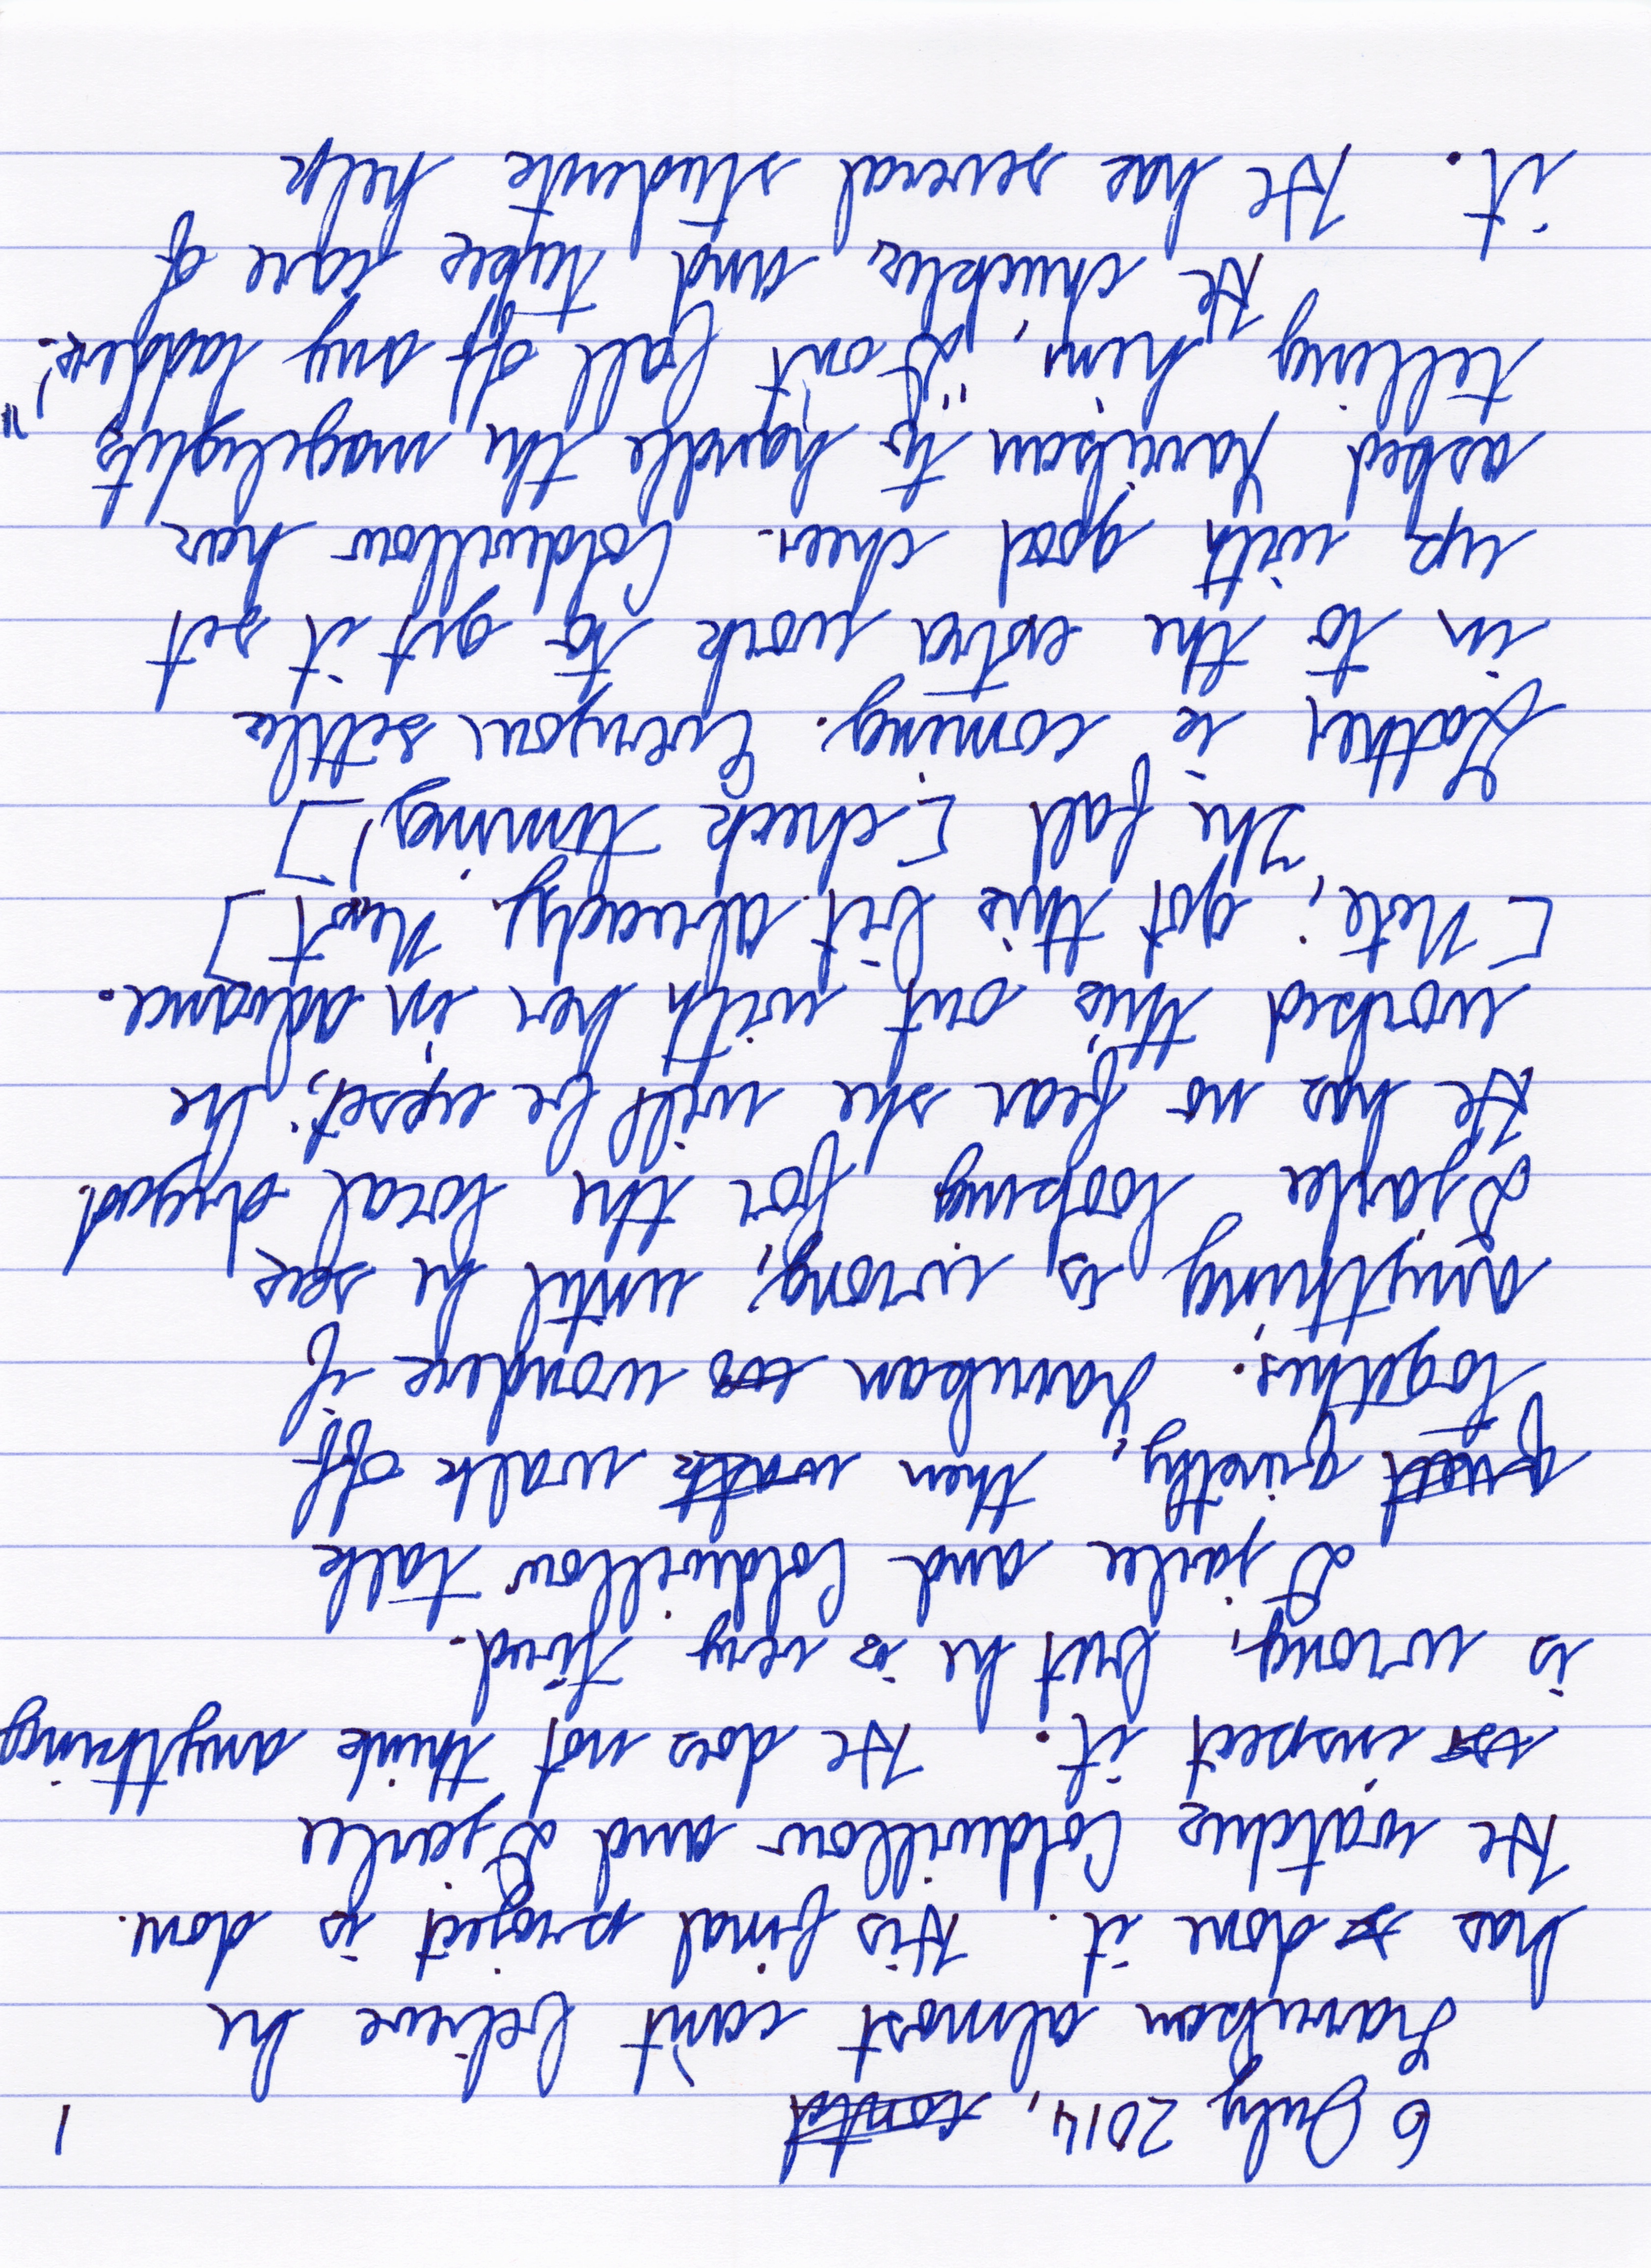 6 July 2014, contd 1
Harrikan almost can't believe he
has done it. His final project is done.
He watches Coldwillow and Djarlee
inspect it. He does not think anything
is wrong, but he is very tired.
Djarlee and Coldwillow talk
quietly, then walk off
together. Harrikan wonders if
anything is wrong, until he sees
Djarlee looping for the local dryad.
He has no fear she will be upset; he
worked this out with her in advance.
[Note: got this bit already. Next]
The fall [check timing!]
Gather is coming. Everyone settles
in to the extra work to get it set
up with good cheer. Coldwillow has
asked Harrikan to handle the magelights
telling him, "Don't fall off any ladders."
He chuckles, and takes care of
it. He has several students help